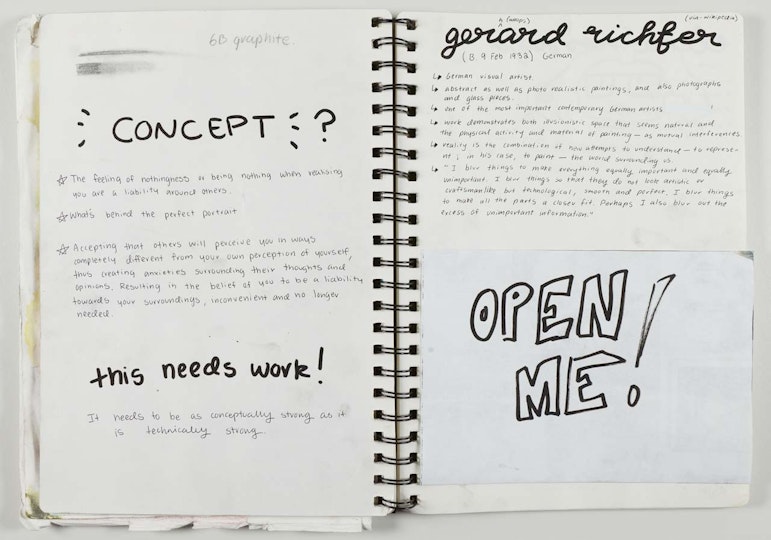 6B graphite.
CONCEPT ?
The feeling of nothingness or being nothing when realising
you are a liability around others.
What's behind the perfect portrait
Accepting that others will perceive you in ways
completely different from your own perception of yourself,
thus creating anxieties surrounding their thoughts and
opinions. Resulting in the belief of you to be a liability
towards your surroundings, inconvenient and no longer
needed.
this needs work!
It needs to be as conceptually strong as it
is technically strong.
h (woops)
(via-wikipedia)
gerard richter
(B 9 Feb 1932) German
↳ German visual artist.
↳ abstract as well as photo realistic paintings, and also photographs
and glass pieces.
↳ one of the most important contemporary German artists
↳ work demonstrates both illusionistic space that seems natural and
the physical activity and material of painting — as mutual interferences.
↳ reality is the combination of new attempts to understand — to represe-
nt ; in his case, to paint — the world surrounding us.
↳ "I blur things to make everything equally important and equally
unimportant. I blur things so that they do not look artistic or
craftsmanlike but technological, smooth and perfect. I blur things
to make all the parts a closer fit. Perhaps I also blur out the
excess of unimportant information."
OPEN
ME!